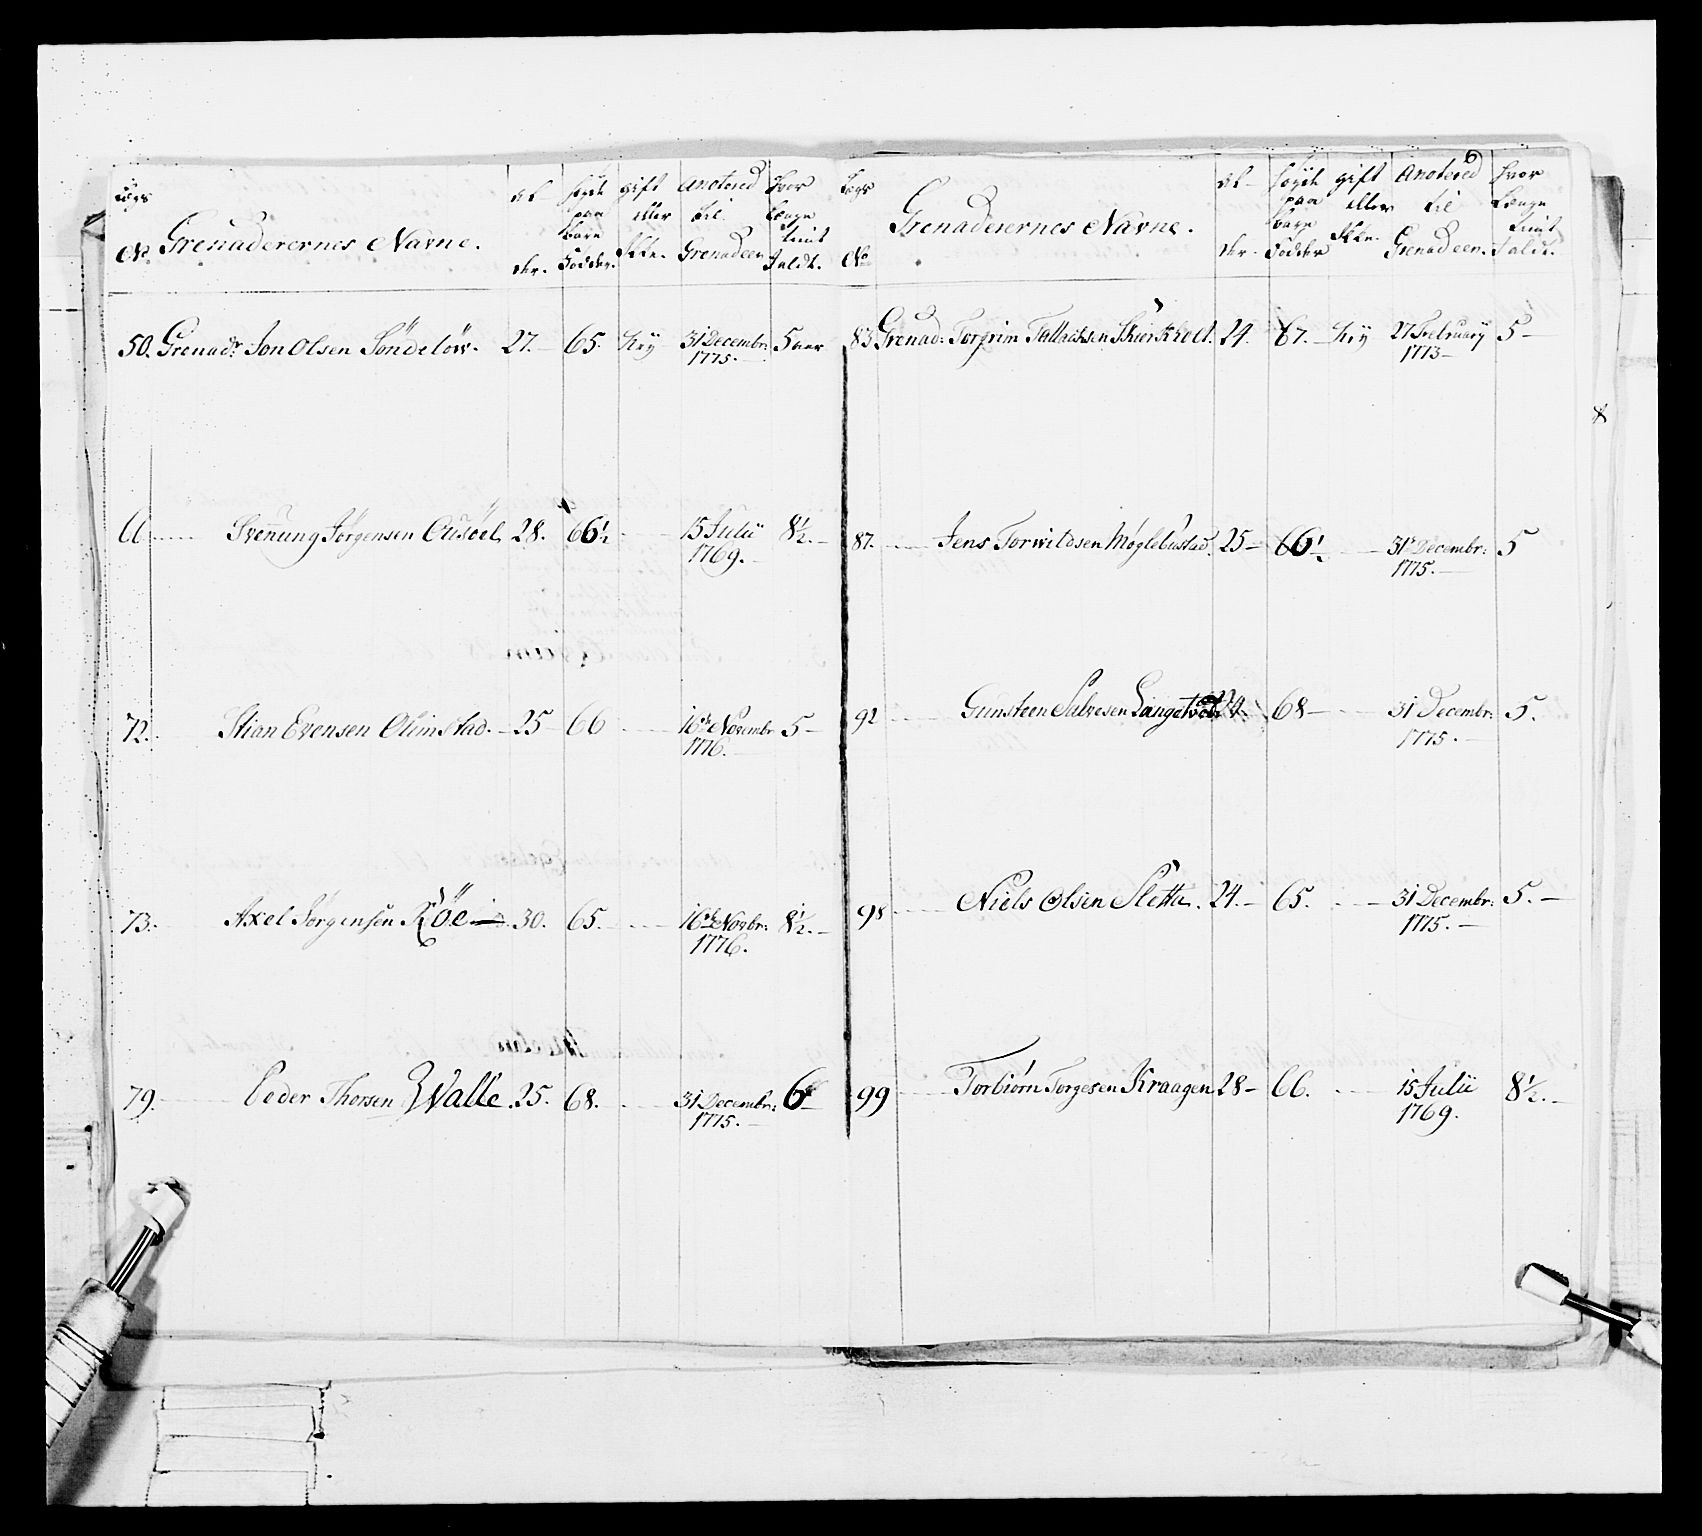 Lægs
No.
Grenaderernes Navne.
Al-
der.
høyde
paa
bare
Fødder.
gift
eller
Ikke.
Anoteret
til
Grenadeer
Hvor
længe
tient
I aldt.
50. Grenadr. Jon Olsen Söndelöw. 27.- 65. Ney 31 Decembr: 1775. 5 aar
66 Svennung Jørgensen Ousöel. 28. 66½ 15 Julii 1769. 8½.-
72. Stian Evensen Olimstad. 25- 66 16de Novembr 1776. 5-
73. Axel Jørgensen Röe 30. 65. 16de Novbr: 1776. 8½.-
79. Peder Thorsen Walle. 25. 68. 31 Decembr: 1775.- 6
6
Lægs
No
Grenaderernes Navne.
Al-
der.
høyde
paa
bare
Fødder
gift
eller
Ikke.
Anotered
til
Grenadeer.
Hvor
længe
tient
I aldt.
83 Grenad: Torgrim Tallachsen Skierkholt. 24. 67.- Ney 27 February 1773- 5-
87. Jens Torwildsen Møglebustad. 25- 66½ 31 Decembr: 1775. 5
92 Gunsteen Salvesen 24. 68- 31 Decembr: 1775. 5.
98 Niels Olsen Sletta. 24.- 65. 31 Decembr: 1775.- 5.-
99 Torbiørn Torgesen Kraagen 28- 66. 15 Julii 1769. 8½.-